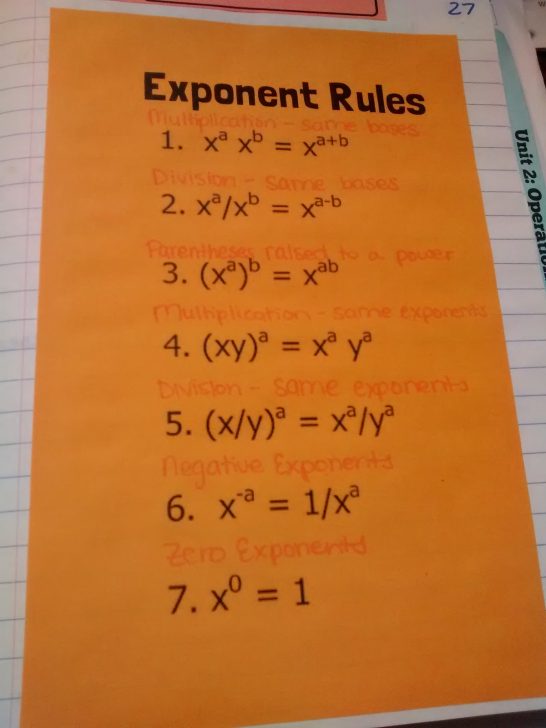 27
Exponent Rules
Multiplication - same bases
1. xᵃ xᵇ = xᵃ⁺ᵇ
Division - same bases
2. xᵃ/xᵇ = xᵃ⁻ᵇ
Parentheses raised to a power
3. (xᵃ)ᵇ = xᵃᵇ
Multiplication - same exponents
4. (xy)ᵃ = xᵃ yᵃ
Division - same exponents
5. (x/y)ᵃ = xᵃ/yᵃ
Negative Exponents
6. x⁻ᵃ = 1/xᵃ
Zero Exponents
7. x⁰ = 1
Unit 2: Operation